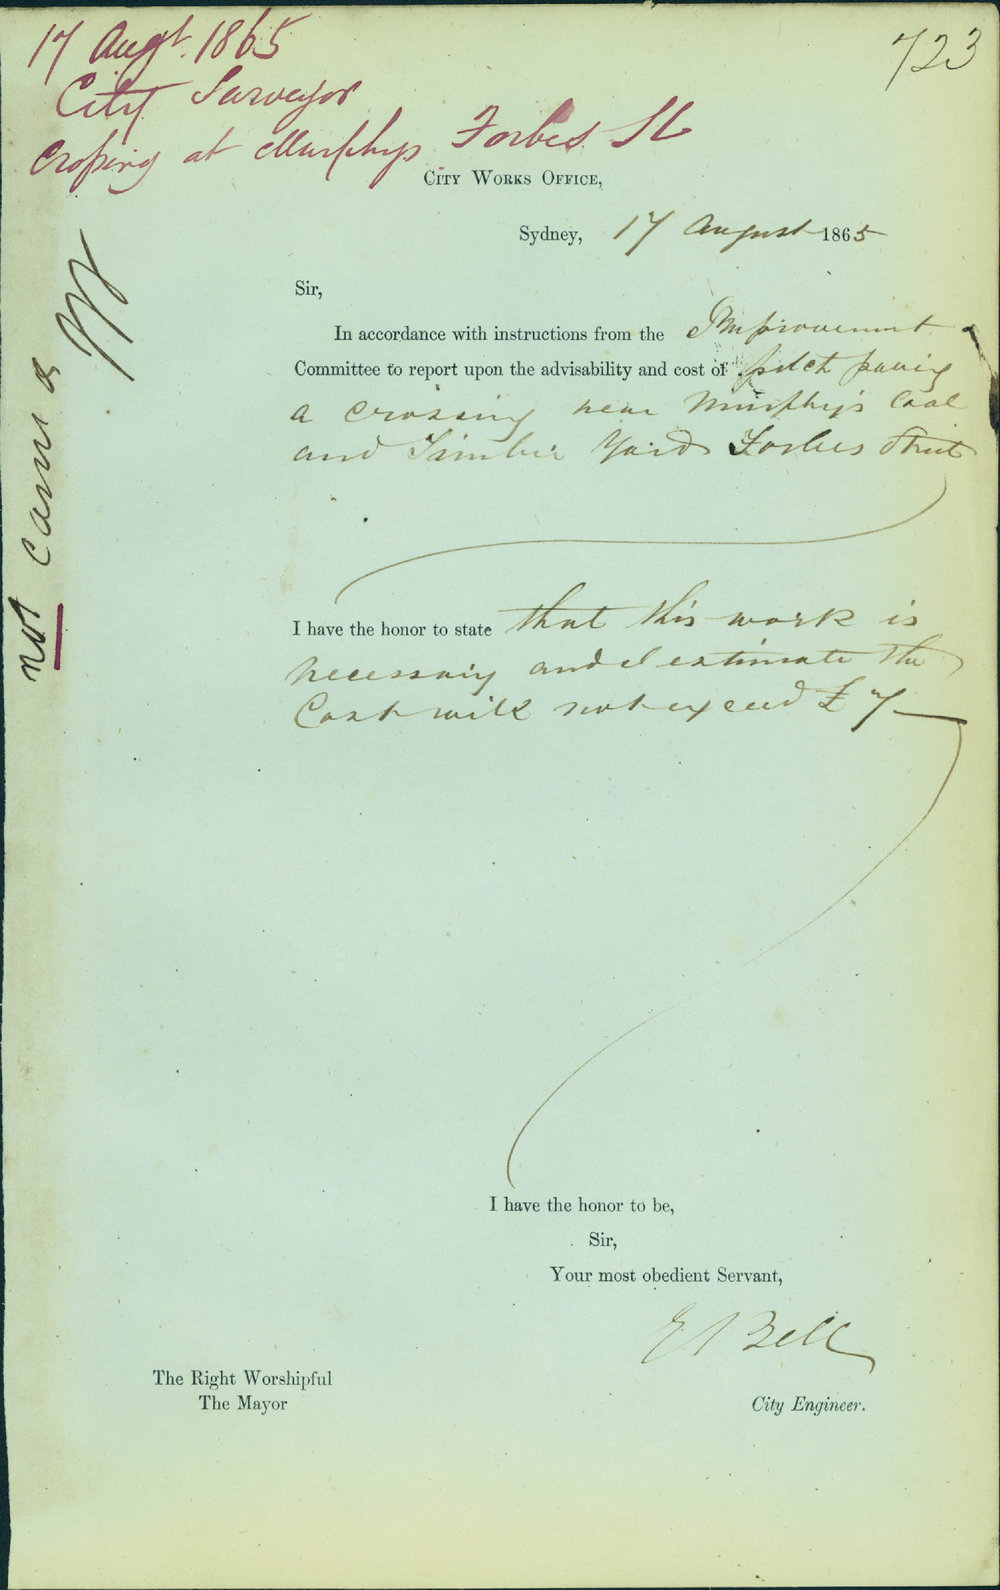 17 Augt. 1865
723
City Surveyor
Crossing at Murphys Forbes St
CITY WORKS OFFICE,
Sydney, 17 August 1865
Sir,
In accordance with instructions from the Improvement
Committee to report upon the advisability and cost of pitch paving
a crossing near Murphy's Coal
and Timber Yard Forbes Street
I have the honor to state that this work is
necessary and I estimate the
Cost will not exceed £7
not Carried
I have the honor to be,
Sir,
Your most obedient Servant,
E Bell
The Right Worshipful
The Mayor
City Engineer.